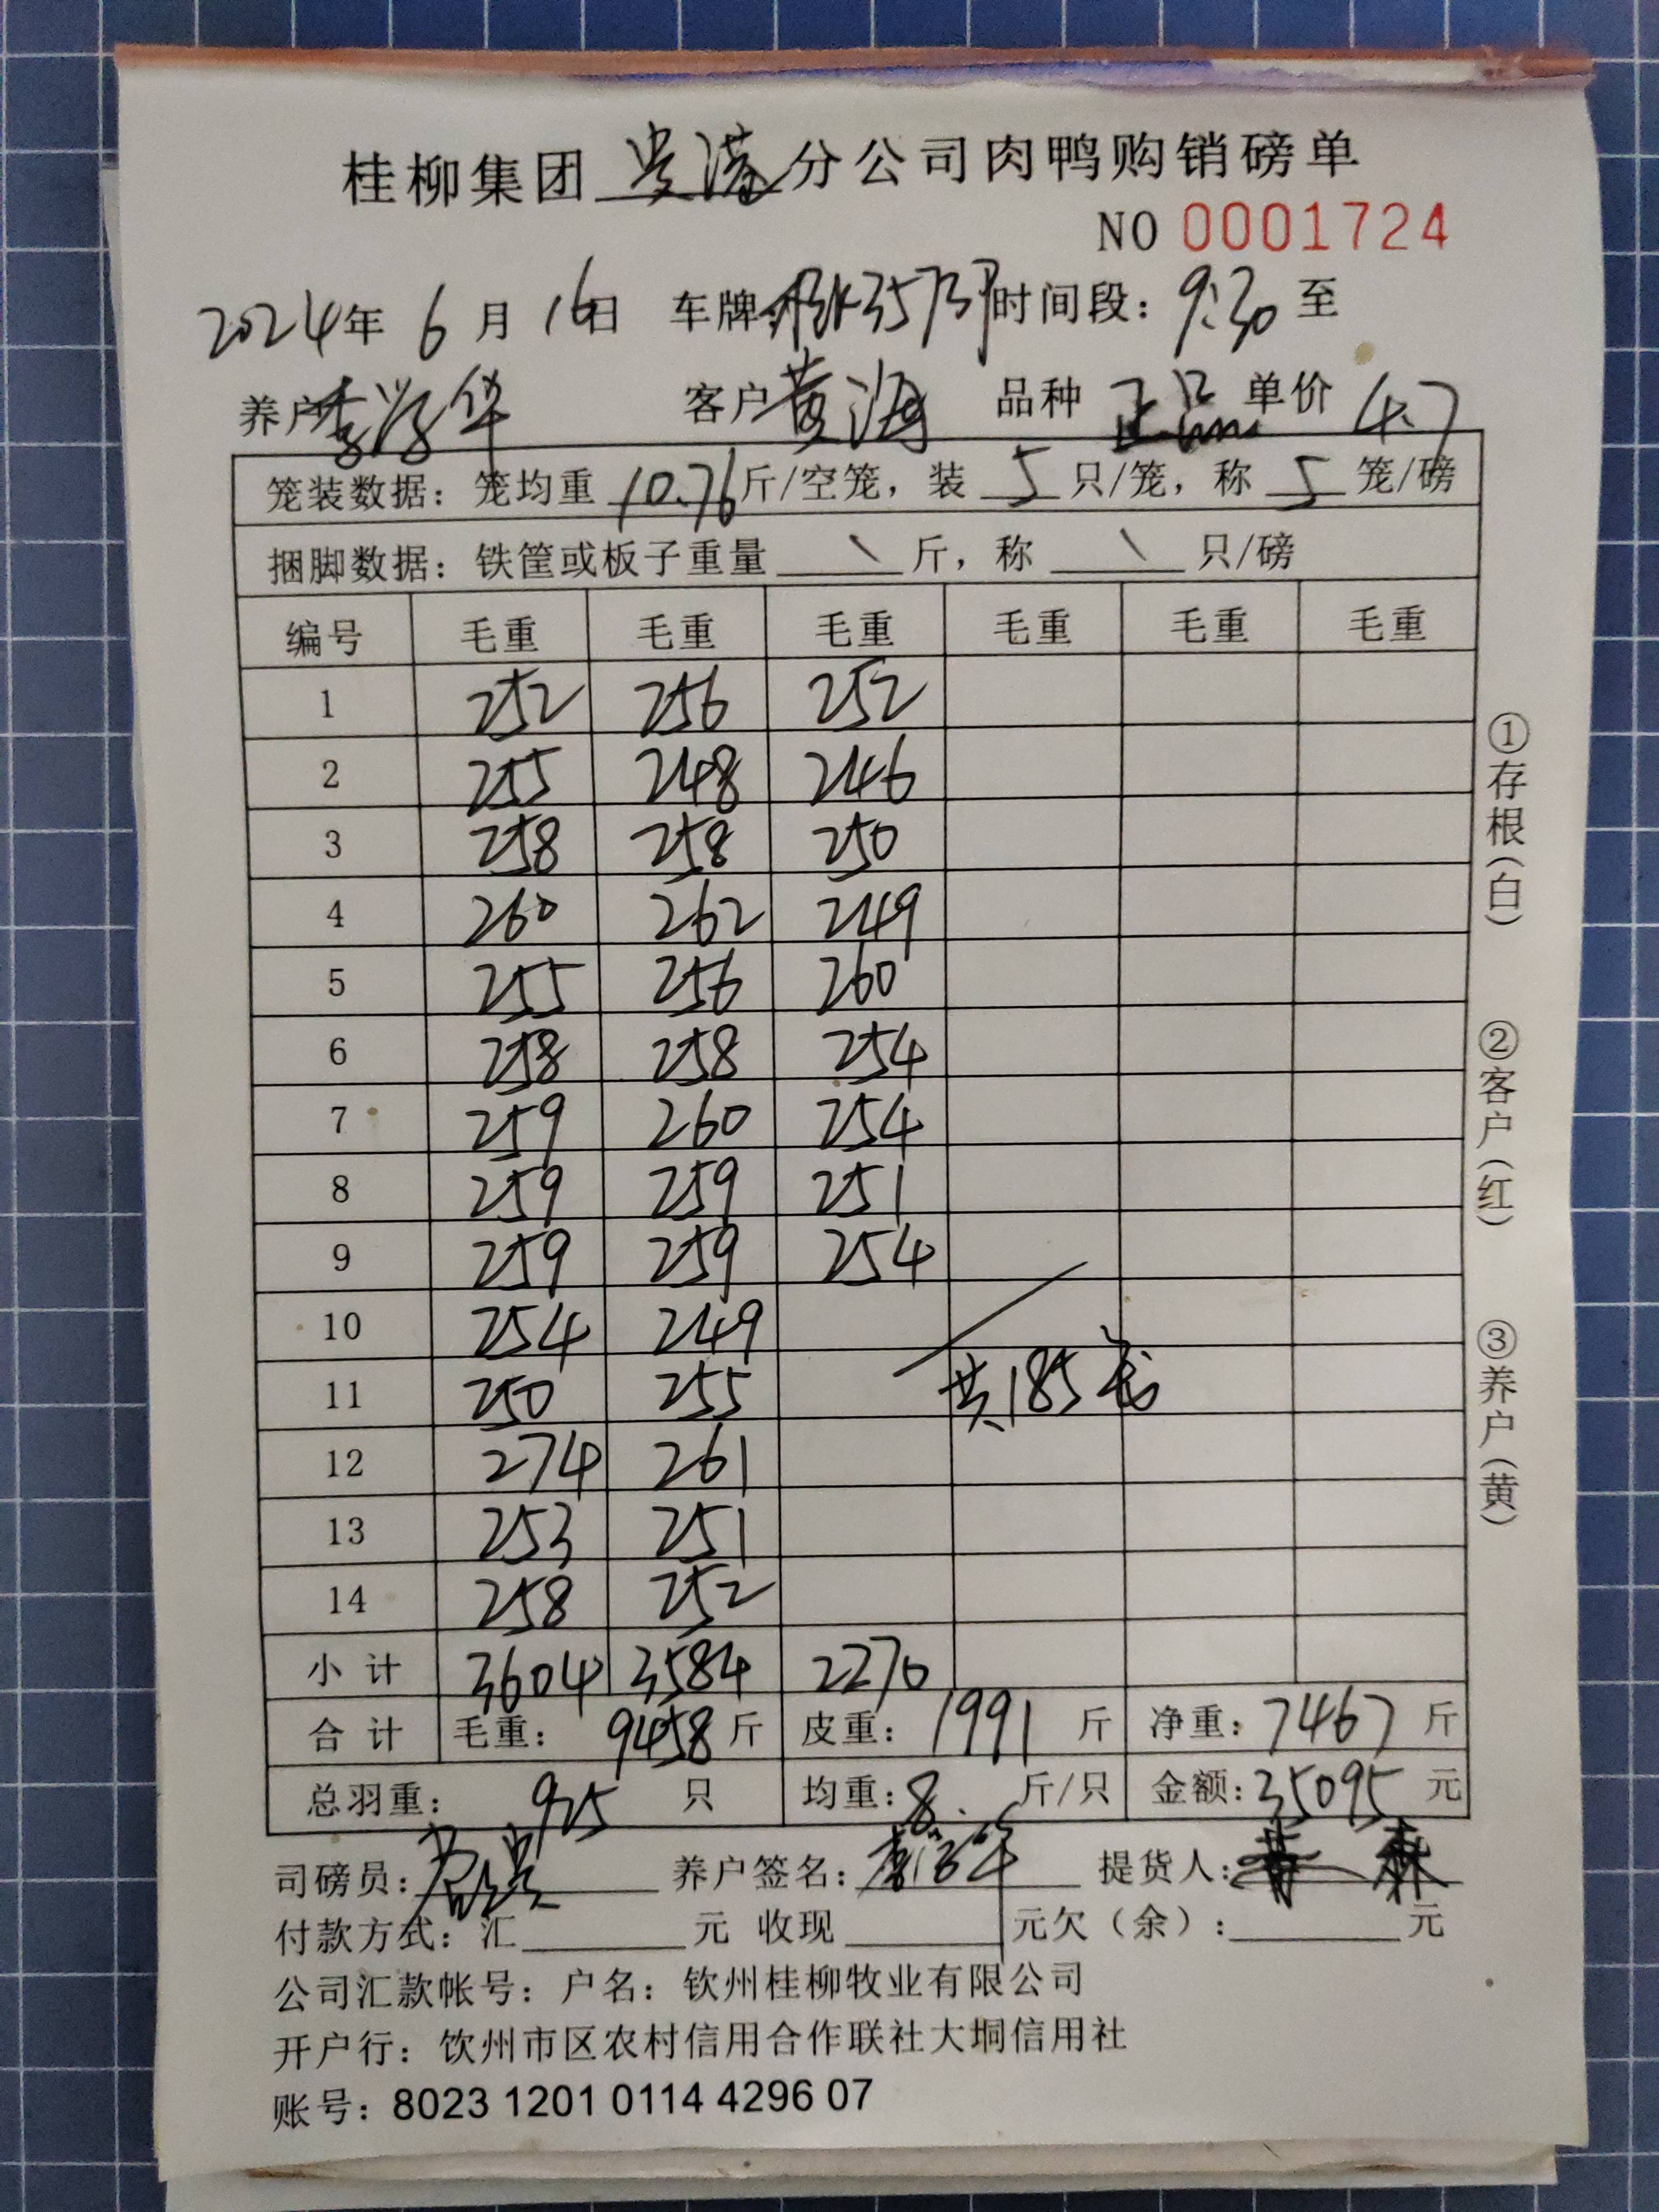 桂柳集团 贵港 分公司肉鸭购销磅单
NO 0001724
2024年 6 月 16日 车牌: 时间段: 9:30 至
养户 客户 黄海 品种 正品 单价 4.7
笼装数据: 笼均重 10.76 斤/空笼, 装 5 只/笼, 称 5 笼/磅
捆脚数据: 铁筐或板子重量 \ 斤, 称 \ 只/磅
编号 毛重 毛重 毛重 毛重 毛重 毛重
1 252 256 252
2 255 248 246
3 258 258 250
4 260 262 249
5 255 256 260
6 258 258 254
7 259 260 254
8 259 259 251
9 259 259 254
10 254 249
11 250 255 共185笼
12 274 261
13 253 251
14 258 252
小计 3604 3584 2270
合计 毛重: 9458 斤 皮重: 1991 斤 净重: 7467 斤
总羽重: 925 只 均重: 8. 斤/只 金额: 35095 元
司磅员: 养户签名: 提货人:
付款方式: 汇 元 收现 元欠(余): 元
公司汇款帐号: 户名: 钦州桂柳牧业有限公司
开户行: 饮州市区农村信用合作联社大垌信用社
账号: 8023 1201 0114 4296 07
①存根(白)
②客户(红)
③养户(黄)